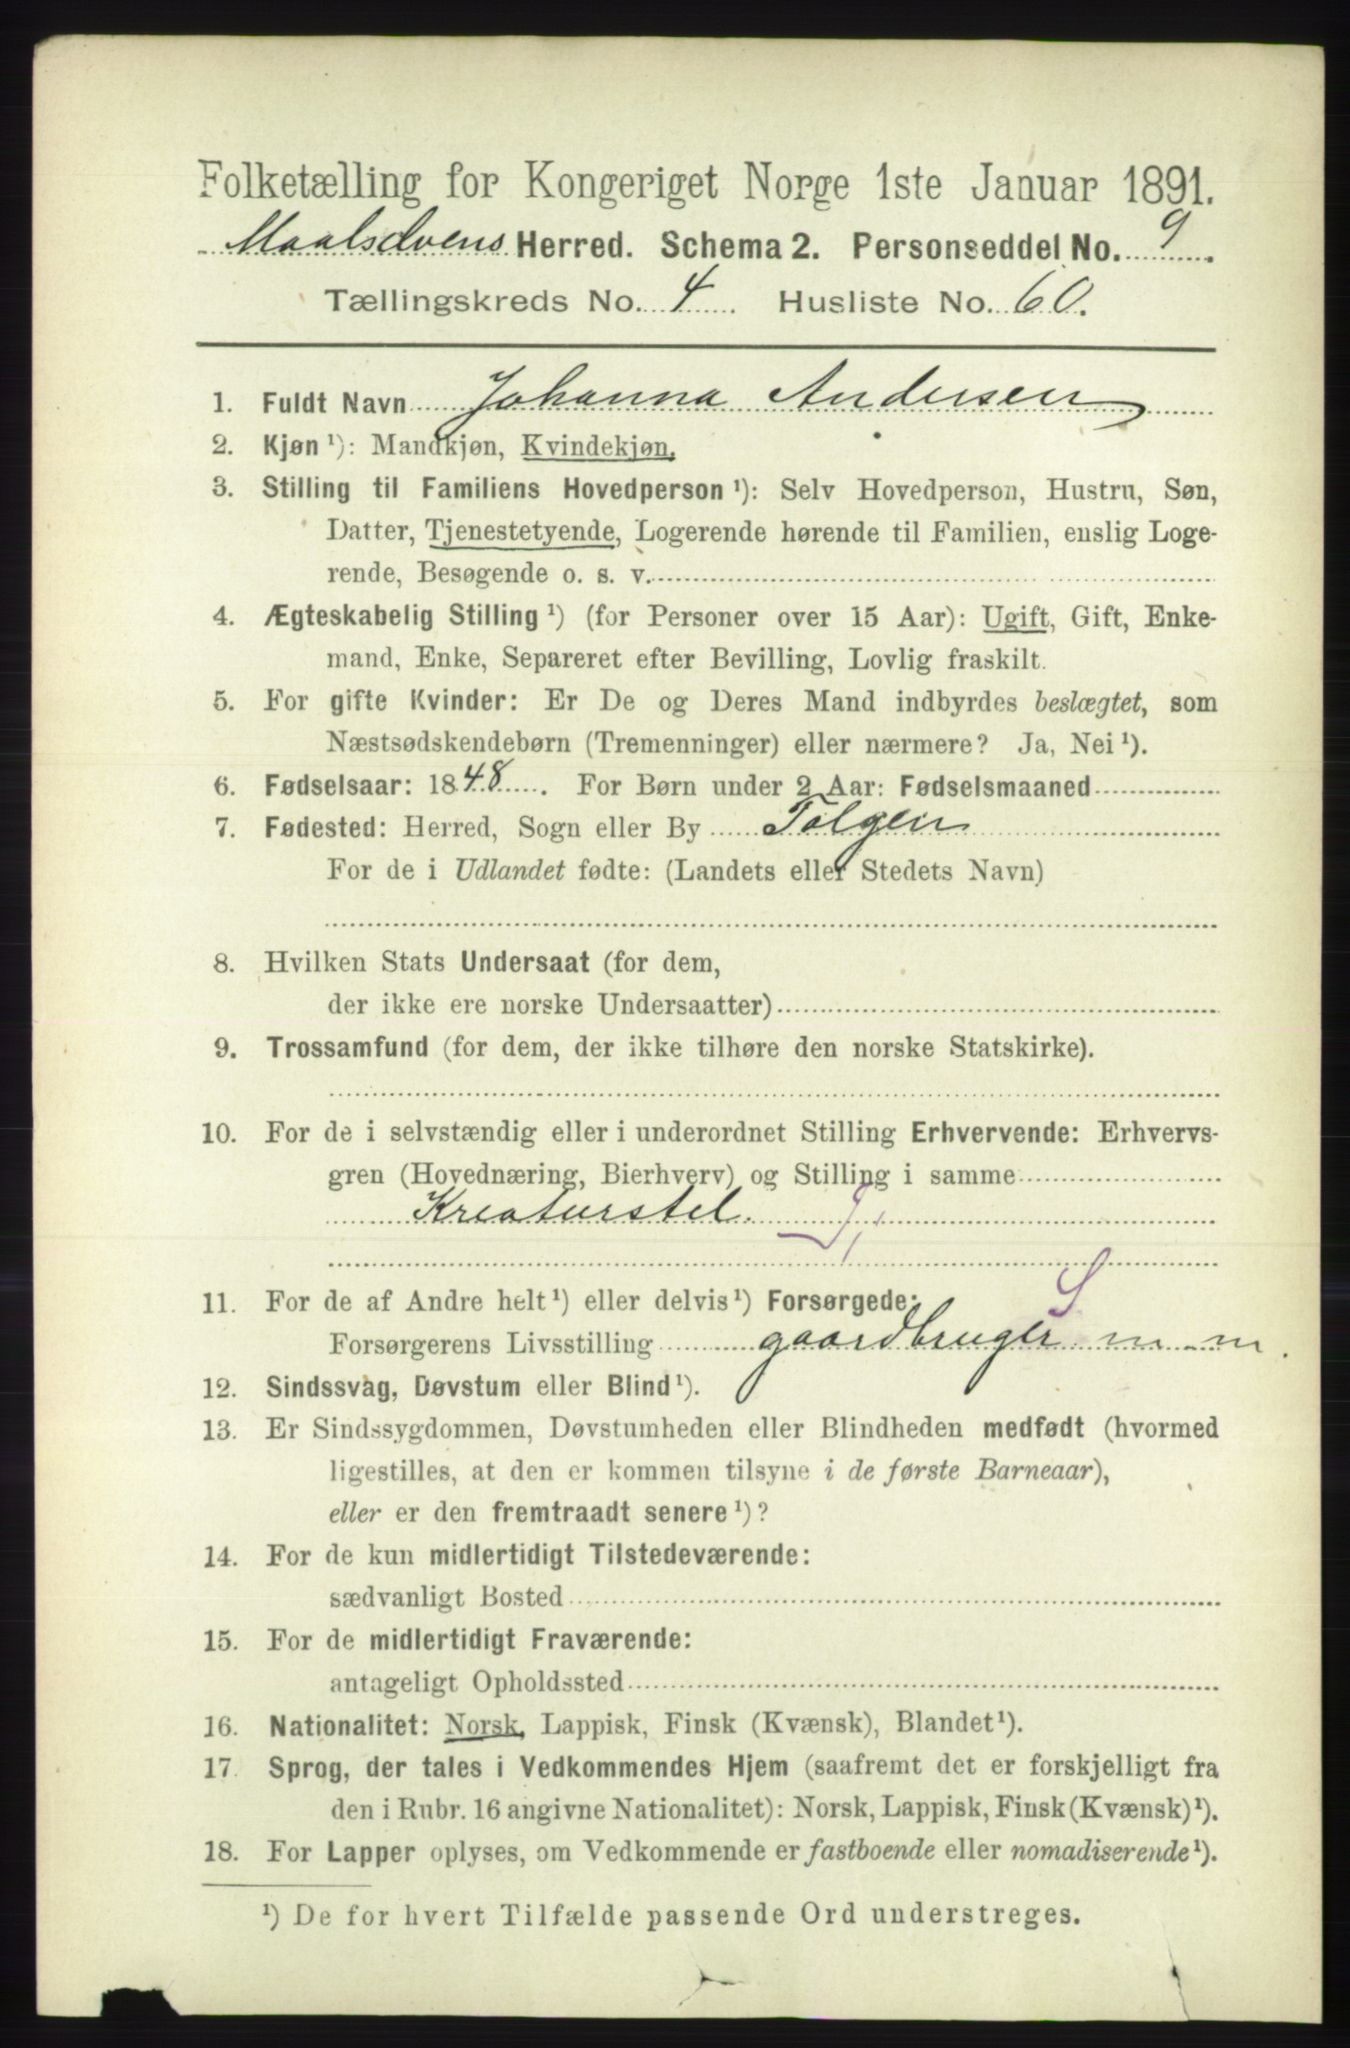 Folketælling for Kongeriget Norge 1ste Januar 1891.
Maalselvens Herred. Schema 2. Personseddel No. 9.
Tællingskreds No. 4. Husliste No. 60.
1. Fuldt Navn Johanna Andersen
2. Kjøn ¹): Mandkjøn, Kvindekjøn.
3. Stilling til Familiens Hovedperson ¹): Selv Hovedperson, Hustru, Søn,
Datter, Tjenestetyende, Logerende hørende til Familien, enslig Loge-
rende, Besøgende o. s. v.
4. Ægteskabelig Stilling ¹) (for Personer over 15 Aar): Ugift, Gift, Enke-
mand, Enke, Separeret efter Bevilling, Lovlig fraskilt.
5. For gifte Kvinder: Er De og Deres Mand indbyrdes beslægtet, som
Næstsødskendebørn (Tremenninger) eller nærmere? Ja, Nei ¹).
6. Fødselsaar: 1848. For Børn under 2 Aar: Fødselsmaaned
7. Fødested: Herred, Sogn eller By Tolgen
For de i Udlandet fødte: (Landets eller Stedets Navn)
8. Hvilken Stats Undersaat (for dem,
der ikke ere norske Undersaatter)
9. Trossamfund (for dem, der ikke tilhøre den norske Statskirke).
10. For de i selvstændig eller i underordnet Stilling Erhvervende: Erhvervs-
gren (Hovednæring, Bierhverv) og Stilling i samme
Kreaturstel.
11. For de af Andre helt ¹) eller delvis ¹) Forsørgede: S
Forsørgerens Livsstilling gaardbruger m. m.
12. Sindssvag, Døvstum eller Blind ¹).
13. Er Sindssygdommen, Døvstumheden eller Blindheden medfødt (hvormed
ligestilles, at den er kommen tilsyne i de første Barneaar),
eller er den fremtraadt senere ¹)?
14. For de kun midlertidigt Tilstedeværende:
sædvanligt Bosted
15. For de midlertidigt Fraværende:
antageligt Opholdssted
16. Nationalitet: Norsk, Lappisk, Finsk (Kvænsk), Blandet ¹).
17. Sprog, der tales i Vedkommendes Hjem (saafremt det er forskjelligt fra
den i Rubr. 16 angivne Nationalitet): Norsk, Lappisk, Finsk (Kvænsk) ¹).
18. For Lapper oplyses, om Vedkommende er fastboende eller nomadiserende ¹).
¹) De for hvert Tilfælde passende Ord understreges.